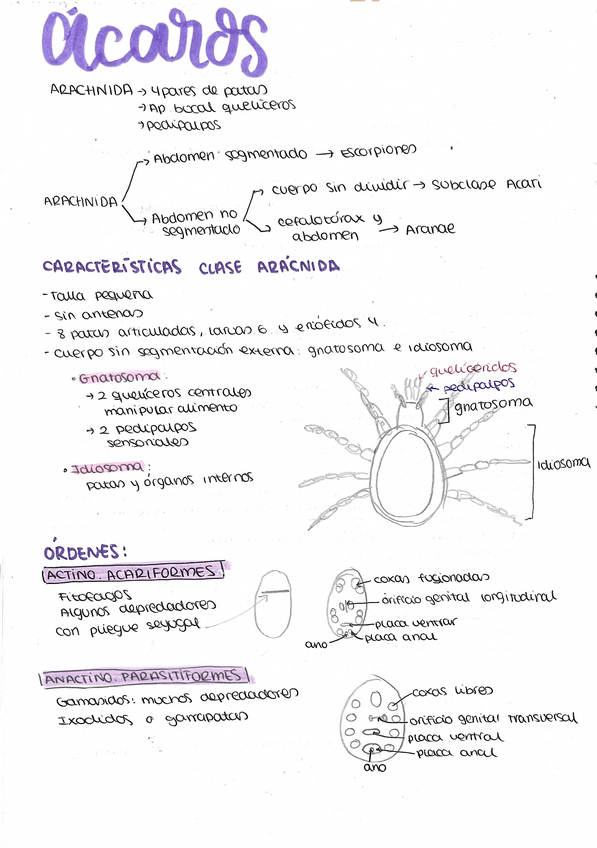 ácaros
ARACHNIDA → 4 pares de patas
→ Ap bucal quelíceros
→ pedipalpos
Abdomen segmentado → Escorpiones
ARACHNIDA
cuerpo sin dividir → Subclase Acari
Abdomen no
segmentado
cefalotórax y
abdomen → Araneae
CARACTERÍSTICAS CLASE ARÁCNIDA
- Talla pequeña
- Sin antenas
- 8 patas articuladas, larvas 6 y eriófidos 4.
- Cuerpo sin segmentación externa: gnatosoma e idiosoma
• Gnatosoma:
→ 2 quelíceros centrales
manipular alimento
→ 2 pedipalpos
sensoriales
• Idiosoma:
patas y órganos internos
quelíceridos
pedipalpos
gnatosoma
Idiosoma
ÓRDENES:
ACTINO. ACARIFORMES
Fitófagos
Algunos depredadores
con pliegue sejugal
coxas fusionadas
orificio genital longitudinal
placa ventral
placa anal
ano
ANACTINO. PARASITIFORMES
Gamasidos: muchos depredadores
Ixodidos o garrapatas
coxas libres
orificio genital transversal
placa ventral
placa anal
ano